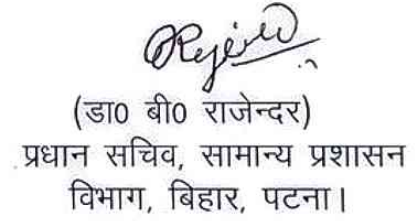 (डा0 बी0 राजेन्दर)
प्रधान सचिव, सामान्य प्रशासन
विभाग, बिहार, पटना।